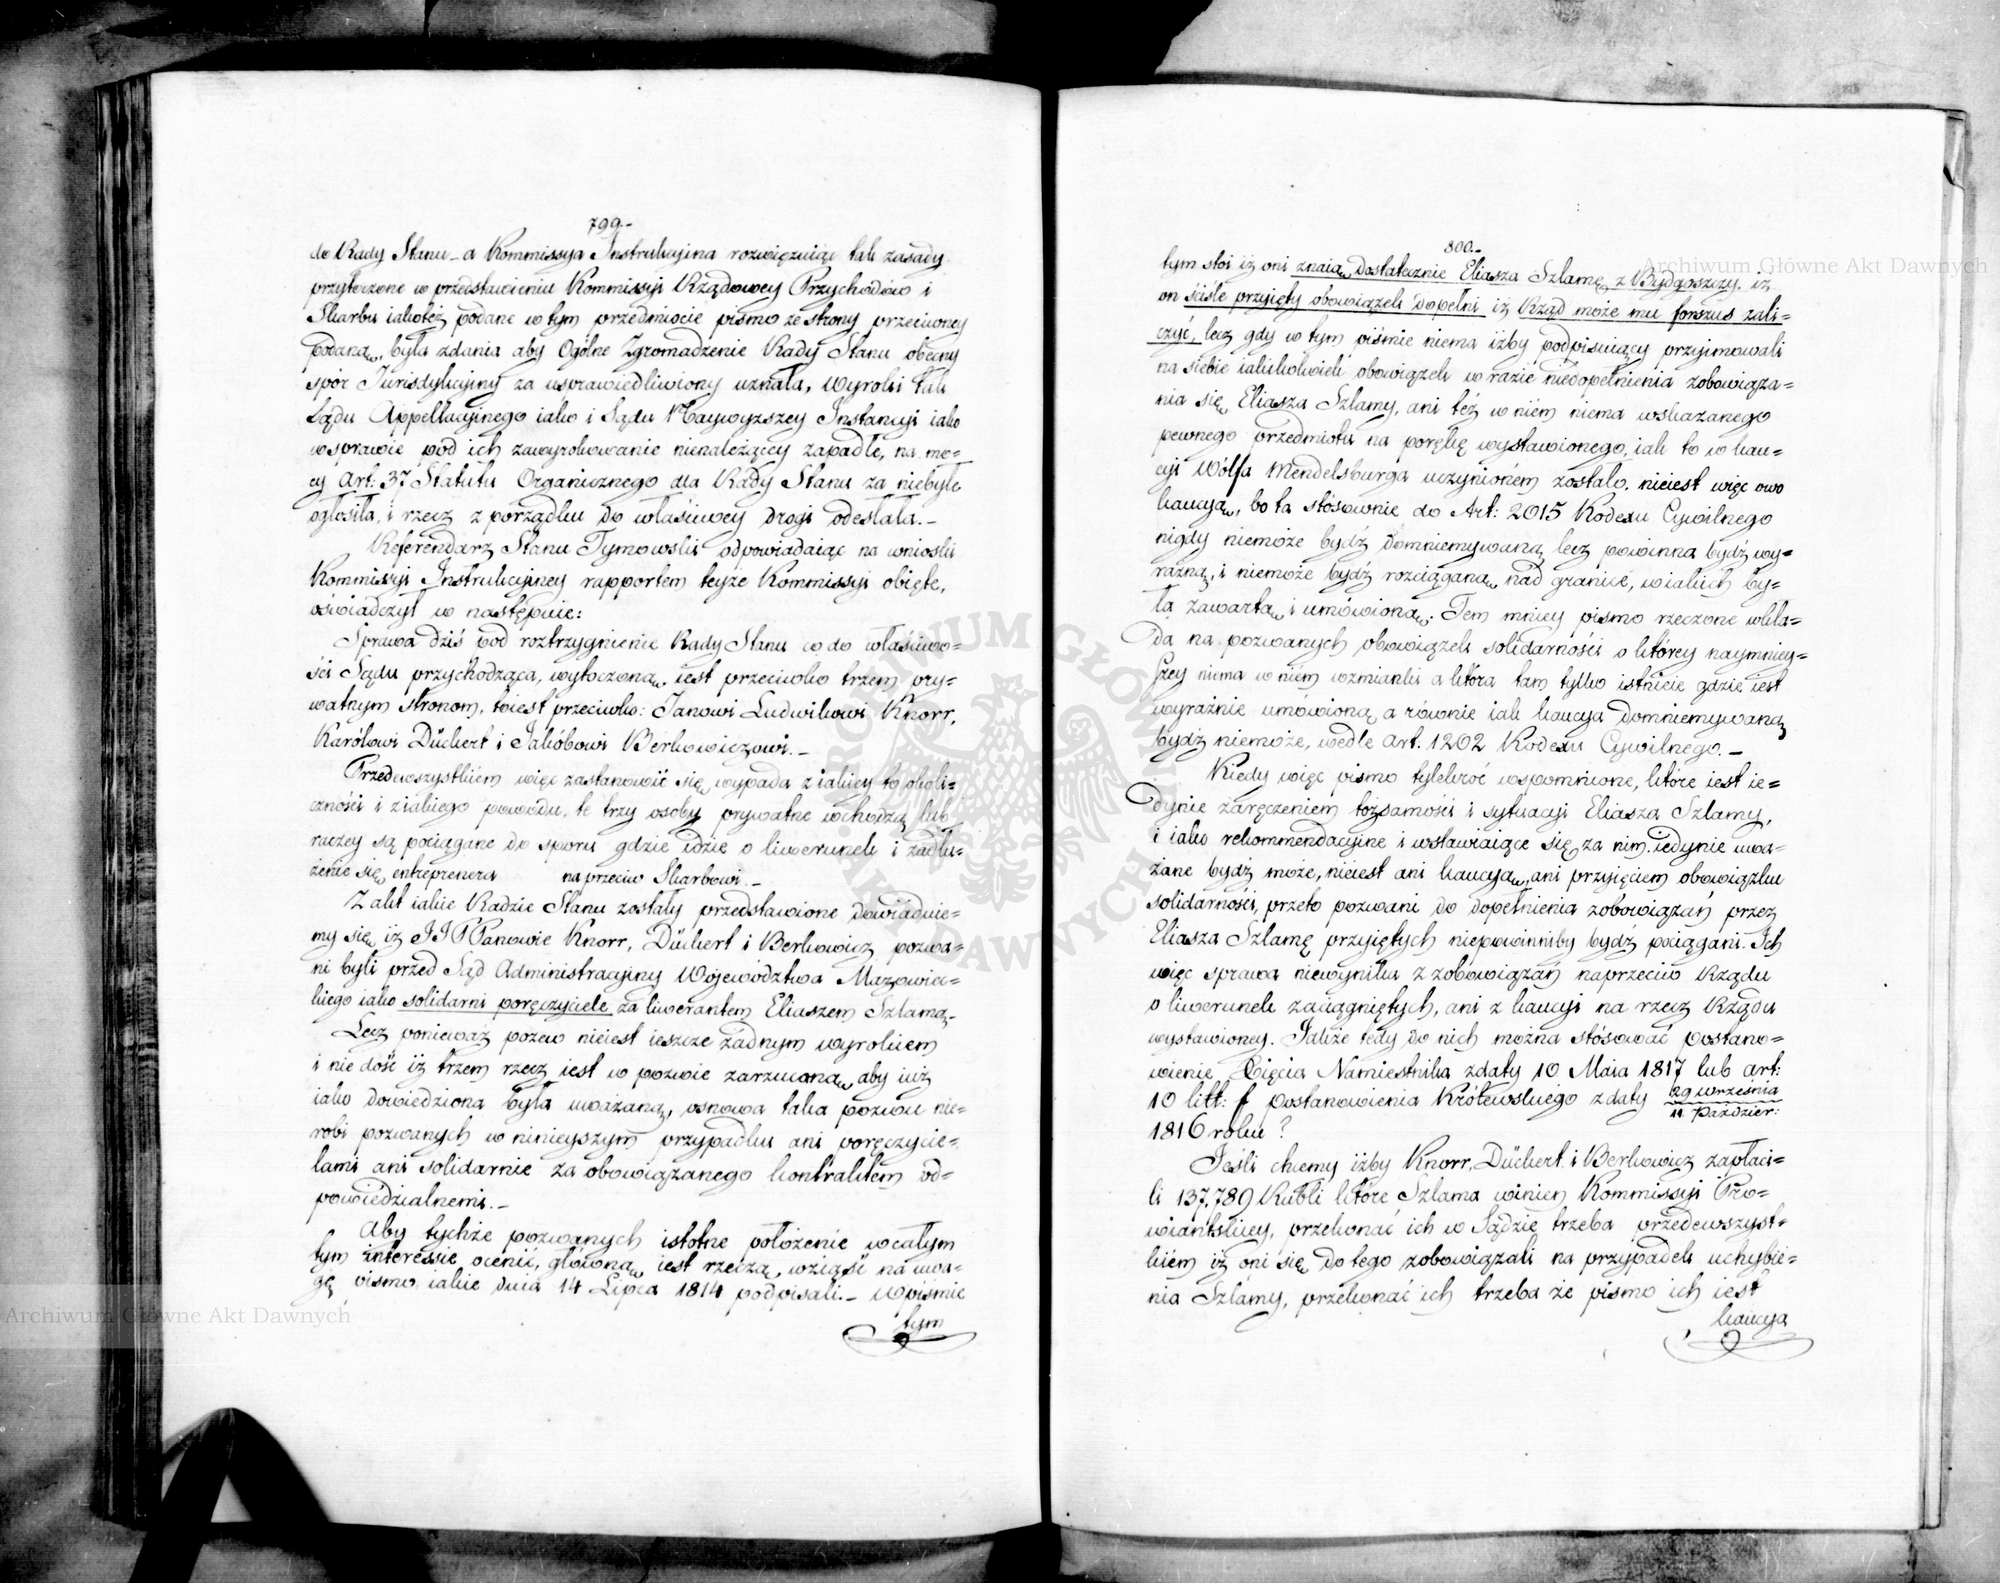 799.-
do Rady Stanu - a Kommissya Instrukcyina rozwięzuiąc tak zasady
przytoczone w przedstawieniu Kommissyi Rządowey Przychodów i
Skarbu iakoteż podane w tym przedmiocie pismo ze strony przeciwney
podaną, była zdania aby Ogólne Zgromadzenie Rady Stanu obecny
spór Jurisdykcyiny za usprawiedliwiony uznała, Wyroki tak
Sądu Appellacyinego iako i Sądu Naywyższey Instancyi iako
w sprawie pod ich zawyrokowanie nienależącey zapadłe, na mo=
cy Art: 37 Statutu Organicznego dla Rady Stanu za niebyłe
ogłosiła, i rzecz z porządku do właściwey drogi odesłała.-
Referendarz Stanu Tymowski odpowiadaiąc na wnioski
Kommissyi Instrukcyiney rapportem teyże Kommissyi obięte,
oświadczył w następuie:
Sprawa dziś pod roztrzygnienie Rady Stanu co do właściwo=
ści Sądu przychodząca, wytoczoną, iest przeciwko trzem pry=
watnym stronom, toiest przeciwko: Janowi Ludwikowi Knorr,
Karólowi Dückert i Jakóbowi Berkowiczowi.-
Przedwszystkiem więc zastanowić się wypada z iakiey to okoli=
czności i z iakiego powodu, te trzy osoby prywatne wchodzą lub
raczey są pociągane do sporu gdzie idzie o liwerunek i zadłu=
żenie się entreprenera na przeciw Skarbowi.-
Z akt iakie Radzie Stanu zostały przedstawione dowiaduie=
my się iż JJPPanowie Knorr, Dückert i Berkowicz pozwa=
ni byli przed Sąd Administracyiny Województwa Mazowiec=
kiego iako solidarni poręczyciele za liwerantem Eliaszem Szlamą.-
Lecz ponieważ pozew nieiest ieszcze żadnym wyrokiem
i nie dość iż trzem rzecz iest w pozwie zarzuconą, aby iuż
iako dowiedziona była uważaną, osnowa taka pozwu nie=
robi pozwanych w ninieyszym przypadku ani poręczycie=
lami ani solidarnie za obowiązanego kontraktem od=
powiedzialnemi.-
Aby tychże pozwanych istotne położenie w całym
tym interessie ocenić, główną iest rzeczą, wziąść na uwa=
gę pismo iakie dnia 14 Lipca 1814 podpisali.- W piśmie
tym
800.-
tym stoi iż oni znaią dostatecznie Eliasza Szlamę z Bydgoszczy, iż
on ściśle przyięty obowiązek dopełni iż Rząd może mu forszus zali=
czyć, lecz gdy w tym piśmie niema iżby podpisuiący przyimowali
na siebie iakikolwiek obowiązek w razie niedopełnienia zobowiąza=
nia się Eliasza Szlamy, ani też w niem niema wskazanego
pewnego przedmiotu na porękę wystawionego, iak to w kau=
cyi Wolfa Mendelsburga uczynioném zostało, nieiest więc owo
kaucyą, bo ta stósownie do Art: 2015 Kodexu Cywilnego
nigdy niemoże bydź domniemywaną, lecz powinna bydź wy=
raźną, i niemoże bydź rozciąganą nad granice, w iakich by=
ła zawartą i umówioną. Tem mniey pismo rzeczone wkła=
da na pozwanych obowiązek solidarności o którey naymniey=
szey niema w niem wzmianki a która tam tylko istnieie gdzie iest
wyraźnie umówioną, a równie iak kaucya domniemywaną
bydź niemoże, wedle Art. 1202 Kodexu Cywilnego.-
Kiedy więc pismo tylekroć wspomnione, które iest ie=
dynie zaręczeniem tożsamości i sytuacyi Eliasza Szlamy,
i iako rekommendacyine i wstawiaiące się za nim iedynie uwa=
żane bydź może, nieiest ani kaucyą, ani przyięciem obowiązku
solidarności, przeto pozwani do dopełnienia zobowiązań przez
Eliasza Szlamę przyiętych niepowinniby bydź pociągani. Ich
więc sprawa niewynika z zobowiązań naprzeciw Rządu
o liwerunek zaciągniętych, ani z kaucyi na rzecz Rządu
wystawioney. Jakże tedy do nich można stósować postano=
wienie Xięcia Namiestnika z daty 10 Maia 1817 lub art:
10 litt: f postanowienia Królewskiego z daty 29 września
11 Paździer:
1816 roku ?
Jeśli chcemy iżby Knorr, Dückert i Berkowicz zapłaci=
li 137,789 Rubli które Szlama winien Kommissyi Pro=
wiantskiey, przekonać ich w Sądzie trzeba przedewszyst=
kiem iż oni się do tego zobowiązali na przypadek uchybie=
nia Szlamy, przekonać ich trzeba że pismo ich iest
kaucya
Archiwum Główne Akt Dawnych
Archiwum Główne Akt Dawnych
ARCHIWUM GŁÓWNE AKT DAWNYCH